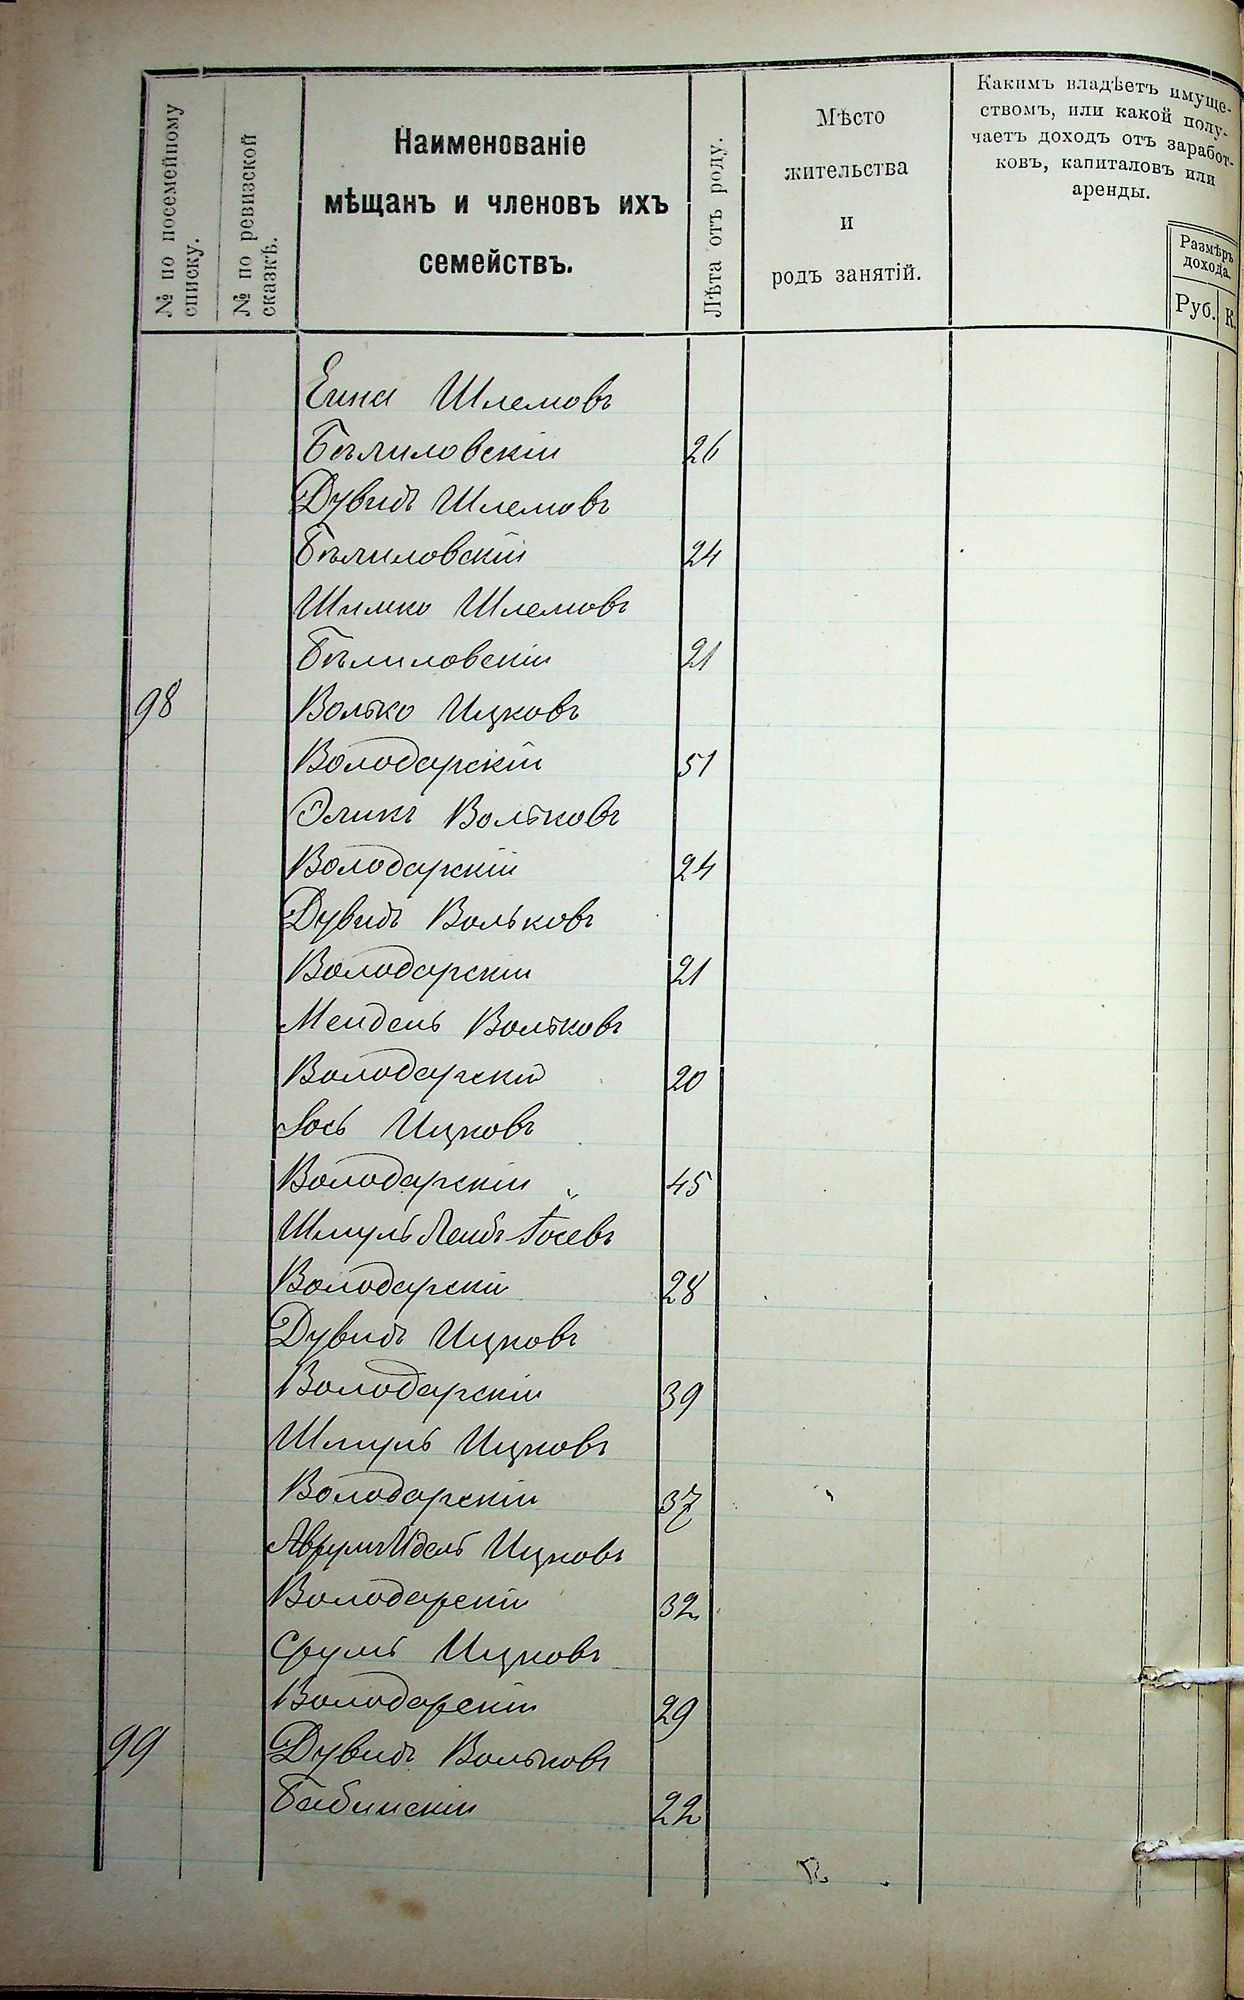 № по посемейному
списку.
№ по ревизской
сказкѣ.
Наименованіе
мѣщанъ и членовъ ихъ
семействъ.
Лѣта отъ роду.
Мѣсто
жительства
и
родъ занятій.
Какимъ владѣетъ имуще-
ствомъ, или какой полу-
чаетъ доходъ отъ заработ-
ковъ, капиталовъ или
аренды.
Размѣръ
дохода.
Руб. К.
Шлемовъ
Бѣлиловскій 26
Дувидъ Шлемовъ
Бѣлиловскій 24
Шимко Шлемовъ
Бѣлиловскій 21
98 Волько Ицковъ
Володарскій 51
Эликъ Вольковъ
Володарскій 24
Дувидъ Вольковъ
Володарскій 21
Мендель Вольковъ
Володарскій 20
Іось Ицковъ
Володарскій 45
Шмуль Лейбъ Іосевъ
Володарскій 28
Дувидъ Ицковъ
Володарскій 39
Шмуль Ицковъ
Володарскій 37
Аврумъ Идель Ицковъ
Володарскій 32
Сруль Ицковъ
Володарскій 29
99 Дувидъ Вольковъ
Бабинскій 22